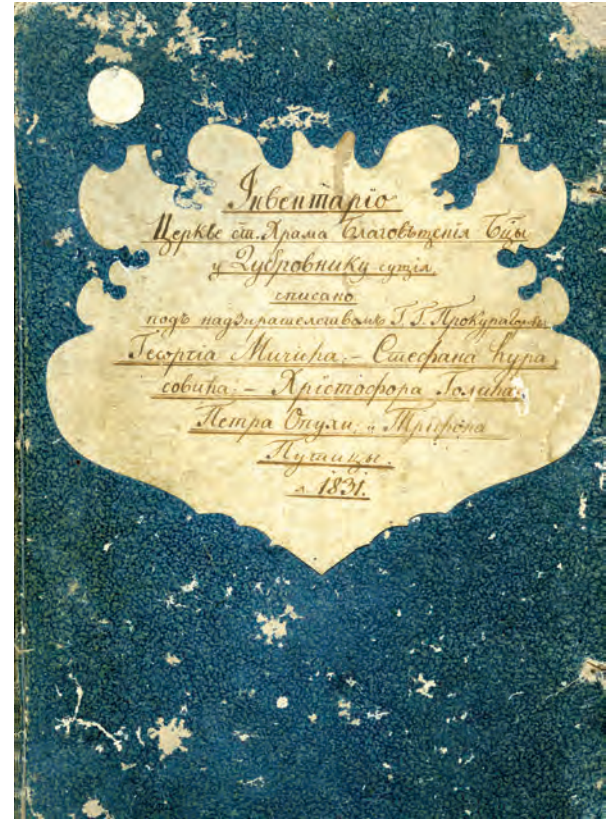 Інвентаріо
Церкве ст. Храма Благовѣщенія Бцы
у Дубровнику сущія,
списано
подъ надзирателствомъ Г. Г. Прокураторъ
Георгіа Мичића; – Стефана Кура,
совића; – Хрістофора Голића;
Петра Опули; и Тріфона
Пучицы.
л. 1831.